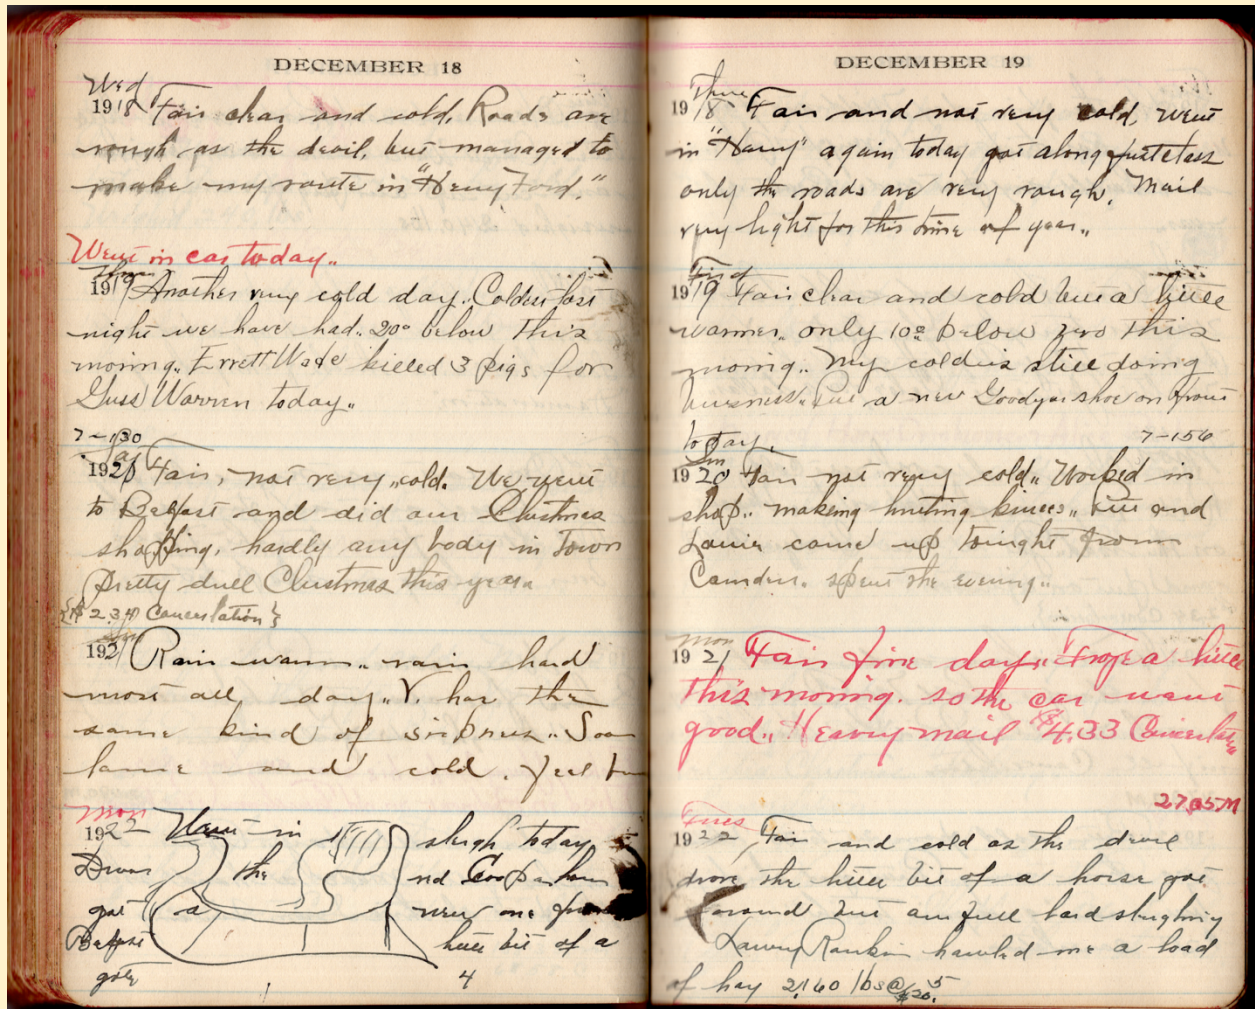 DECEMBER 18
Wed
1918 Fair clear and cold. Roads are
rough as the devil, but managed to
make my route in "Henry Ford."
Went in car today..
Thur
1919 Another very cold day.. Coldest last
night we have had.. 20° below this
morning.. Errett Wade killed 3 pigs for
Guss Warren today..
7-130
Sat
1920 Fair, not very cold. We went
to Belfast and did our Christmas
shopping, hardly any body in Town
Pretty dull Christmas this year..
{$2.34 Cancelation}
Sun
1921 Rain warm.. rain hard
most all day.. V. has the
same kind of sickness.. Sore
lame and cold. feel
Mon
1922 Went in sleigh today
Drove the
got a new one from
Belfast little bit of a
4
DECEMBER 19
Thur
1918 Fair and not very cold, went
in "Henry" again today got along
only the roads are very rough. Mail
very light for this time of year..
Frid
1919 Fair clear and cold but a little
warmer.. only 10° below zero this
morning.. My cold is still doing
business.. Put a new Goodyear shoe on front
today. 7-156
Sun
1920 Fair not very cold.. Worked in
shop.. making hunting knives.. and
came up tonight from
Camden. spent the evening..
Mon
1921 Fair fine day.. Froze a little
this morning. so the car went
good.. Heavy mail $4.33 Cancelation
27.05M
Tues
1922 Fair and cold as the devil
drove the little bit of a horse got
around but awfull hard sleighing
Rankin hawled me a load
of hay 2,160 lbs @ $20.